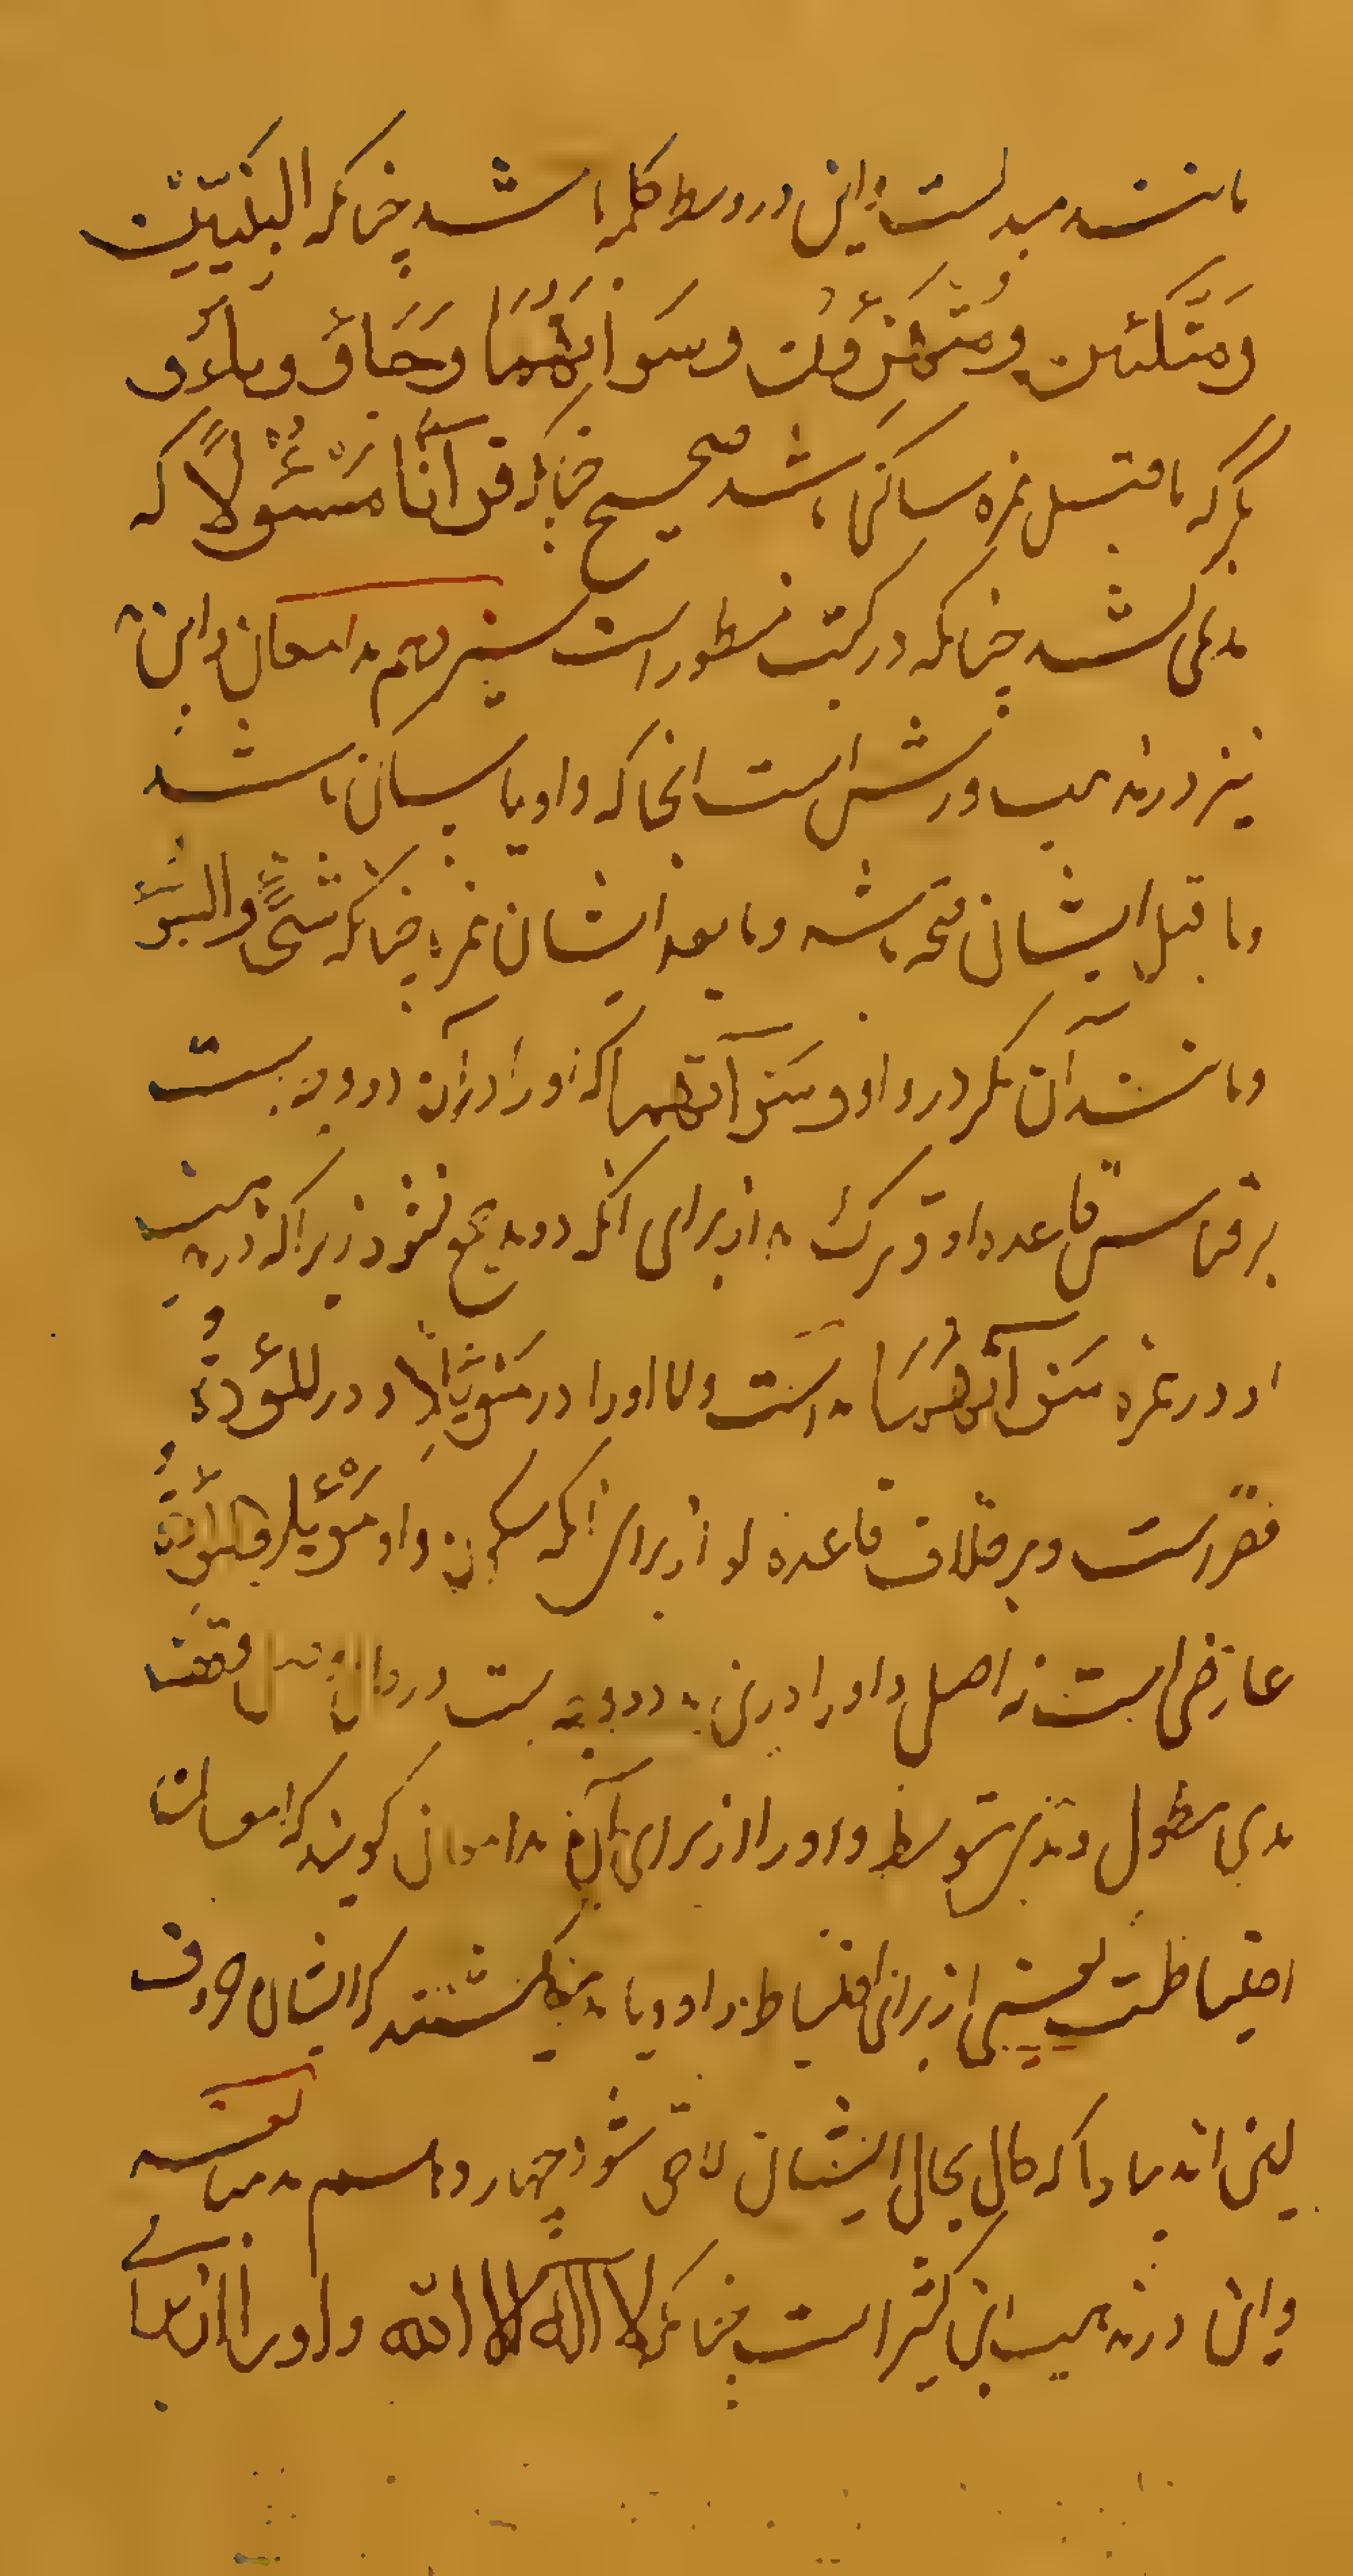 مانند مد بدلست و این در وسط کلمه باشد چنانکه النَّبِیِّین
ومتّکئین ومستهزؤن وسَوآتهما وجَاؤ وبَاؤ
مگر که ماقبل همزه ساکن باشد صحیح چنانکه قرآنًا مَسْئُولًا که
مد نمی کشد چنانکه در کتب مسطور است سیزدهم مد امعان و این
نیز در مذهب ورش است انجا که واو یا یا ساکن باشد
وما قبل ایشان فتحه باشد وما بعد ایشان همزه چنانکه شَیْءٍ والسَّوْءِ
ومانند آن مگر در واو سَوْآتهما که او را در آن دو وجه است
بر قیاس قاعده او و ترک مد از برای انکه دو مد جمع نشود زیرا که در مذهب
او در همزه سَوْآتهُمَا مد است ولا او را در مَوْئِلًا و در المَوْؤُدَةُ
قصر است و بر خلاف قاعده او از برای آنکه سکون واو مَوْئِلًا والمَوْؤُدَةُ
عارضی است نه اصلی و او را درین مد دو وجه است در حال وصل وقف
مدی مطول ومدی متوسط و او را از برای آن مد امعان گویند که امعان
احتیاطست یعنی از برای احتیاط واو ویا مد میکشند که ایشان حروف
لین اند مبادا که کمال بحال ایشان لاحق شود چهاردهم مد مبالغه
و این در مذهب ابن کثیر است چنانکه لا اله الا الله و او را از برای